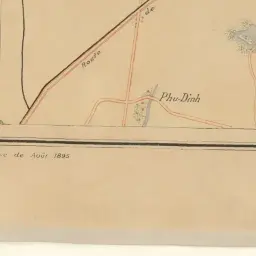 Route de
Phu-Dinh
de Août 1895